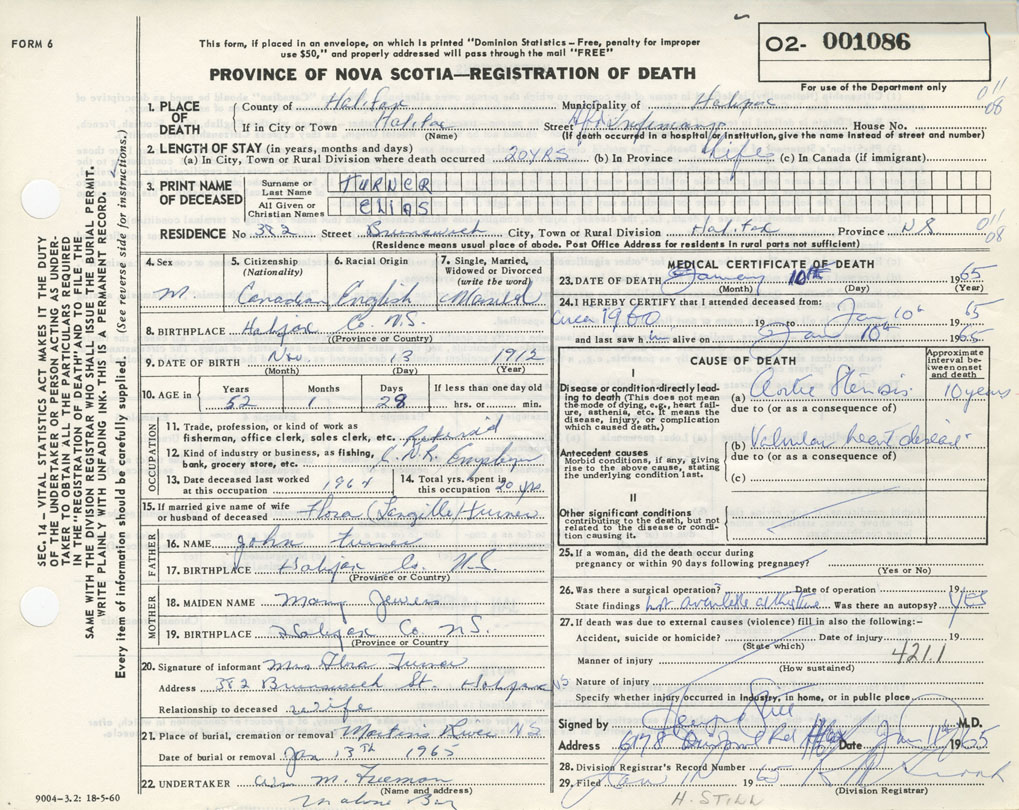 FORM 6
This form, if placed in an envelope, on which is printed "Dominion Statistics – Free, penalty for improper
use $50," and properly addressed will pass through the mail "FREE"
O2- 001086
For use of the Department only
PROVINCE OF NOVA SCOTIA—REGISTRATION OF DEATH
011
08
1. PLACE OF DEATH County of Halifax Municipality of Halifax
If in City or Town Halifax (Name) Street Hfx Infirmary House No.
(If death occurred in a hospital or institution, give the name instead of street and number)
2. LENGTH OF STAY (in years, months and days)
(a) In City, Town or Rural Division where death occurred 20 YRS (b) In Province Life (c) In Canada (if immigrant)
3. PRINT NAME OF DECEASED Surname or Last Name TURNER
All Given or Christian Names ELIAS
RESIDENCE No 382 Street Brunswick City, Town or Rural Division Halifax Province NS 011 08
(Residence means usual place of abode. Post Office Address for residents in rural parts not sufficient)
4. Sex M.
5. Citizenship (Nationality) Canadian
6. Racial Origin English
7. Single, Married, Widowed or Divorced (write the word) Married
8. BIRTHPLACE Halifax Co. N.S.
(Province or Country)
9. DATE OF BIRTH Nov. 13 1912
(Month) (Day) (Year)
10. AGE in Years 52 Months 1 Days 28 If less than one day old hrs. or min.
OCCUPATION
11. Trade, profession, or kind of work as fisherman, office clerk, sales clerk, etc. Retired
12. Kind of industry or business, as fishing, bank, grocery store, etc. C.N.R. Employee
13. Date deceased last worked at this occupation 1964
14. Total yrs. spent in this occupation 20 yrs.
15. If married give name of wife or husband of deceased Flora (Langille) Turner
FATHER
16. NAME John Turner
17. BIRTHPLACE Halifax Co. N.S.
(Province or Country)
MOTHER
18. MAIDEN NAME Mary Jewers
19. BIRTHPLACE Halifax Co N.S.
(Province or Country)
20. Signature of informant Mrs Flora Turner
Address 382 Brunswick St. Halifax NS
Relationship to deceased wife
21. Place of burial, cremation or removal Martins River NS
Date of burial or removal Jan 13TH 1965
22. UNDERTAKER Wm M. Freeman
(Name and address)
Mahone Bay
9004–3.2: 18-5-60
MEDICAL CERTIFICATE OF DEATH
23. DATE OF DEATH January 10th 1965
(Month) (Day) (Year)
24. I HEREBY CERTIFY that I attended deceased from:
circa 1960 19 to Jan 10th 1965
and last saw him alive on Jan 10th 1965
CAUSE OF DEATH
Approximate interval between onset and death
I
Disease or condition directly leading to death (This does not mean the mode of dying, e.g., heart failure, asthenia, etc. It means the disease, injury, or complication which caused death.)
(a) Aortic Stenosis 10 years
due to (or as a consequence of)
Antecedent causes
Morbid conditions, if any, giving rise to the above cause, stating the underlying condition last.
(b) Valvular heart disease
due to (or as a consequence of)
(c)
II
Other significant conditions
contributing to the death, but not related to the disease or condition causing it.
25. If a woman, did the death occur during
pregnancy or within 90 days following pregnancy?
(Yes or No)
26. Was there a surgical operation? Date of operation 19
State findings not available at this time Was there an autopsy? YES
27. If death was due to external causes (violence) fill in also the following:–
Accident, suicide or homicide? Date of injury 19
(State which)
421.1
Manner of injury
(How sustained)
Nature of injury
Specify whether injury occurred in industry, in home, or in public place
Signed by M.D.
Address 6178 Hfx Date Jan 11th 1965
28. Division Registrar's Record Number
29. Filed Jan 19 65
(Division Registrar)
H. STILL
SEC. 14 – VITAL STATISTICS ACT MAKES IT THE DUTY
OF THE UNDERTAKER OR PERSON ACTING AS UNDER-
TAKER TO OBTAIN ALL THE PARTICULARS REQUIRED
IN THE "REGISTRATION OF DEATH" AND TO FILE THE
SAME WITH THE DIVISION REGISTRAR WHO SHALL ISSUE THE BURIAL PERMIT.
WRITE PLAINLY WITH UNFADING INK. THIS IS A PERMANENT RECORD.
Every item of information should be carefully supplied. (See reverse side for instructions.)